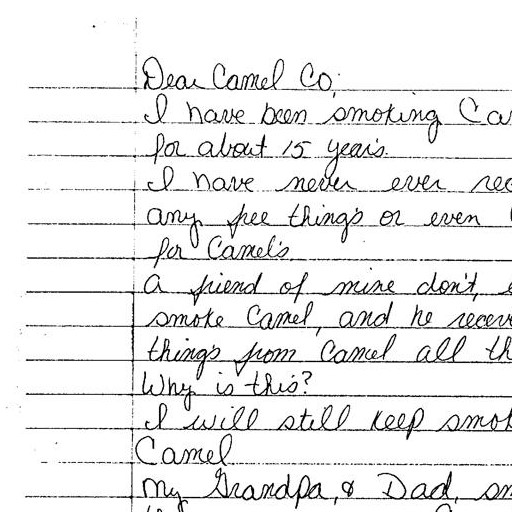 Dear Camel Co,
I have been smoking Ca
for about 15 years.
I have never ever rec
any free things or even
for Camel's
A friend of mine don't,
smoke Camel, and he receiv
things from Camel all th
Why is this?
I will still keep smok
Camel
My Grandpa, & Dad, sm